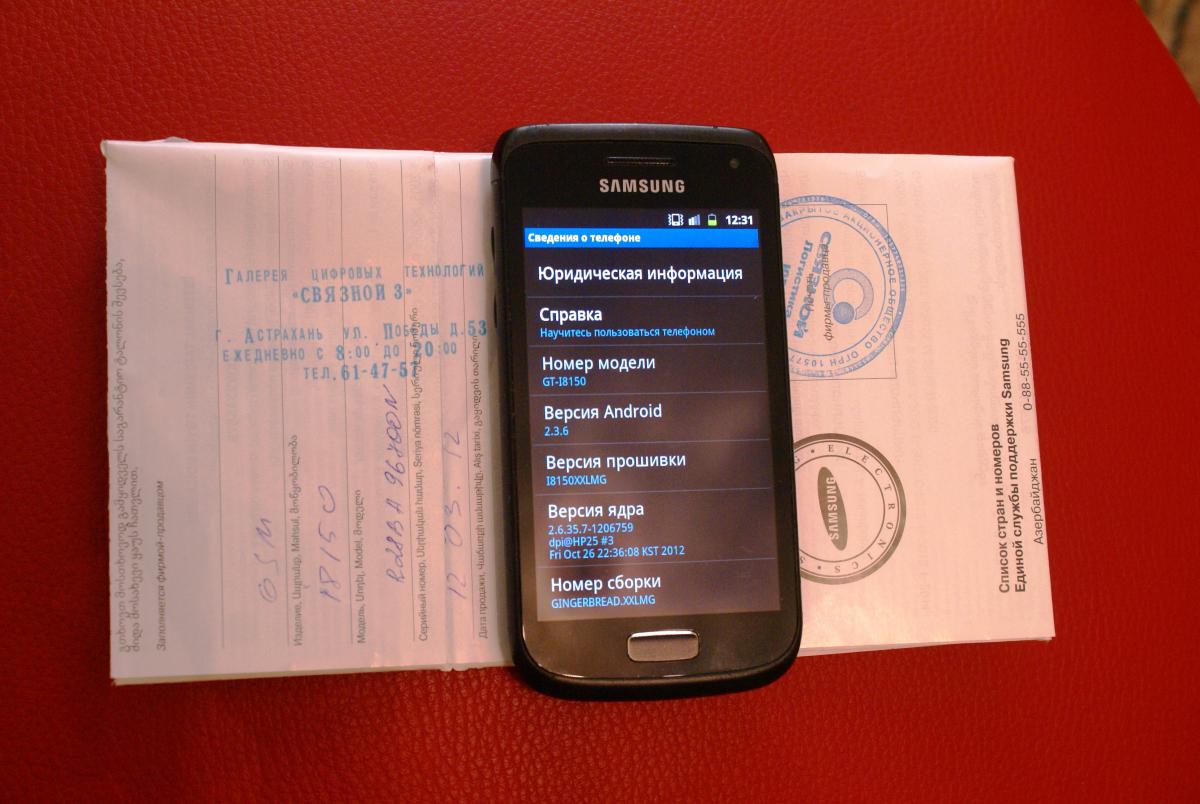 SAMSUNG
12:31
Сведения о телефоне
Юридическая информация
Справка
Научитесь пользоваться телефоном
Номер модели
GT-I8150
Версия Android
2.3.6
Версия прошивки
I8150XXLMG
Версия ядра
2.6.35.7-1206759
dpi@HP25 #3
Fri Oct 26 22:36:08 KST 2012
Номер сборки
GINGERBREAD.XXLMG
ГАЛЕРЕЯ ЦИФРОВЫХ ТЕХНОЛОГИЙ
«СВЯЗНОЙ 3»
Г. АСТРАХАНЬ УЛ. ПОБЕДЫ Д.53
ЕЖЕДНЕВНО С 8:00 ДО 20:00
ТЕЛ. 61-47-5
Заполняется фирмой-продавцом
GSM
Изделие, Ապրանք, Məhsul, მოწყობილობა
I8150
Модель, Մոդել, Model, მოდელი
Серийный номер, Սերիական համար, Seriya nömrəsi,
12 03. 12
Дата продажи, Վաճառքի ամսաթիվ, Alış tarixi, გაყიდვის თარიღი
ЗАКРЫТОЕ АКЦИОНЕРНОЕ ОБЩЕСТВО ОГРН 1057
СВЯЗНОЙ
логистика
фирмы-продавца
ELECTRONICS
SAMSUNG
Список стран и номеров
Единой службы поддержки Samsung
Азербайджан 0-88-55-55-555